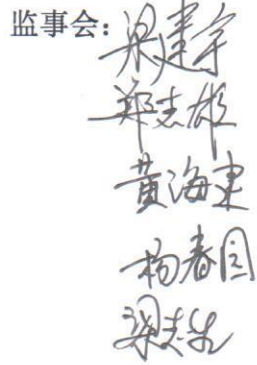 监事会：梁建宇
郑志雄
黄海建
杨春园
梁志生